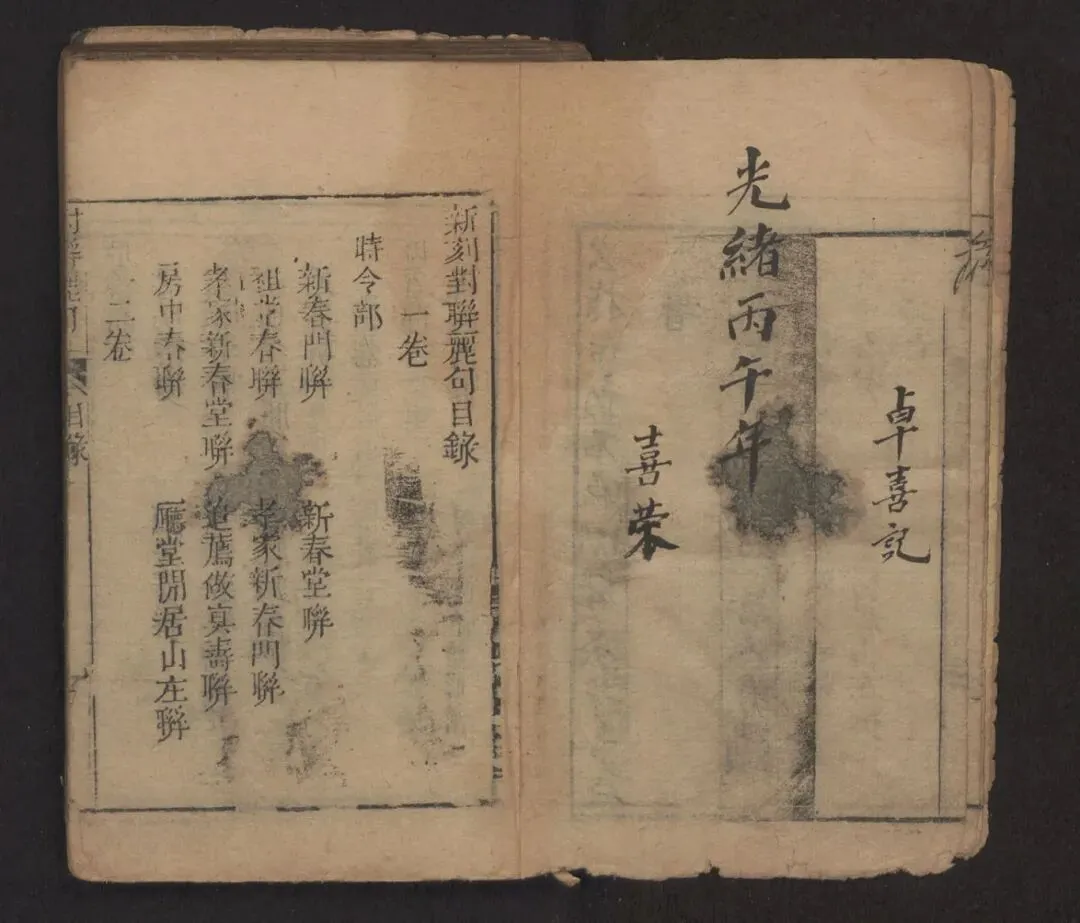 卓喜記
光緒丙午年
喜荣
新刻對聯麗句目錄
一卷
時令部
新春門聯 新春堂聯
祖堂春聯 孝家新春門聯
孝家新春堂聯 追薦做眞壽聯
房中春聯 廳堂閒居山左聯
二卷
目錄